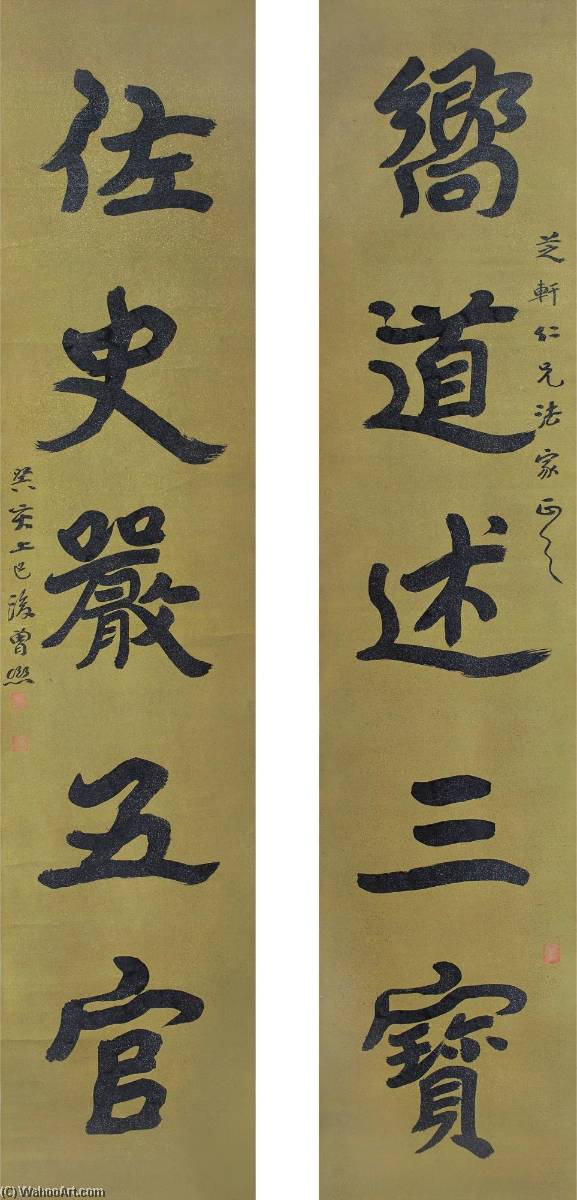 嚮道述三寶
芝軒仁兄法家正之
佐史嚴五官
癸亥上巳後曾熙
(C) WahooArt.com